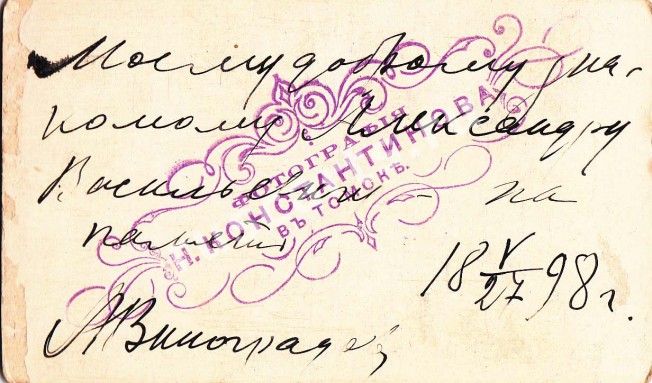 Моему доброму зна-
комому Александру
Васильевичу - на
память
18 V/27 98 г.
АВиноградов
ФОТОГРАФІИ
Н. КОНСТАНТИНОВА
ВЪ ТОМСКѢ.